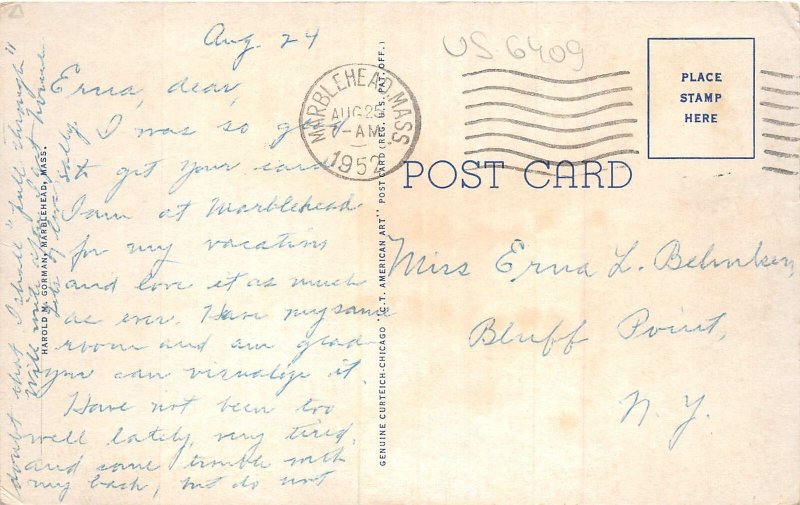 Aug. 24
Erna, dear,
I was so glad
to get your card.
I am at Marblehead
for my vacation
and love it as much
as ever. Have my same
room and am glad
you can visualize it.
Have not been too
well lately, very tired,
and some trouble with
my back, but do not
doubt that I shall "pull through"
Will write after I get home
Lots of love
Sally.
HAROLD M. GORMAN, MARBLEHEAD, MASS.
GENUINE CURTEICH-CHICAGO "C.T. AMERICAN ART" POST CARD (REG. U.S. PAT. OFF.)
US 6409
MARBLEHEAD, MASS
AUG 25
-AM
1952
PLACE
STAMP
HERE
POST CARD
Miss Erna L.
Bluff Point,
N.Y.